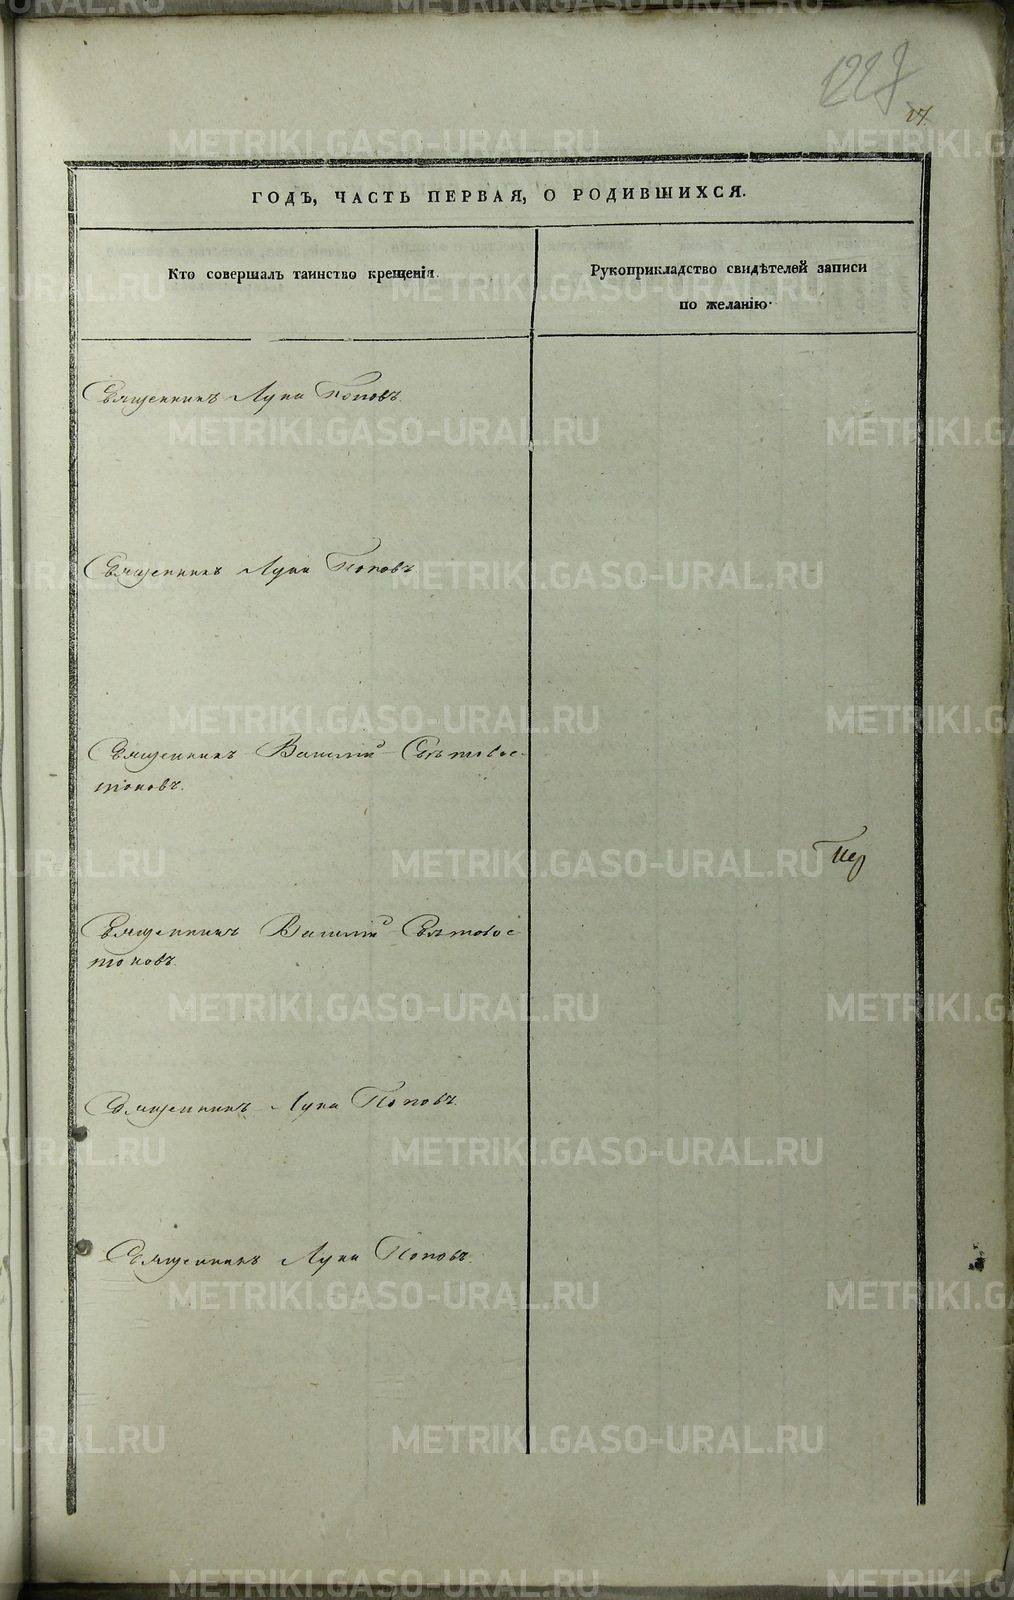 17.
ГОДЪ, ЧАСТЬ ПЕРВАЯ, О РОДИВШИХСЯ.
Кто совершалъ таинство крещенія.
Рукоприкладство свидѣтелей записи
по желанію.
Священникъ Лука Поповъ
Священникъ Лука Поповъ
Священникъ Василій Свѣтовос-
токовъ.
Пер
Священникъ Василій Свѣтовос-
токовъ.
Священникъ Лука Поповъ.
Священникъ Лука Поповъ.
METRIKI.GASO-URAL.RU